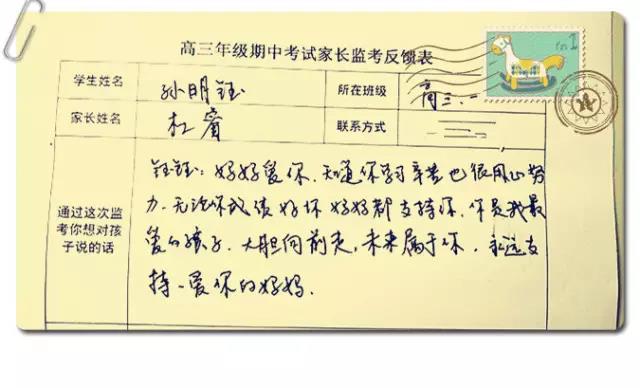 高三年级期中考试家长监考反馈表
学生姓名 孙明钰 所在班级 高三.一
家长姓名 杜 联系方式
通过这次监考你想对孩子说的话
钰钰：好好爱你，知道你学习辛苦也很用心努
力，无论你成绩好坏 好妈都支持你，你是我最
爱的孩子，大胆向前走，未来属于你，永远支
持、爱你的好妈.
1